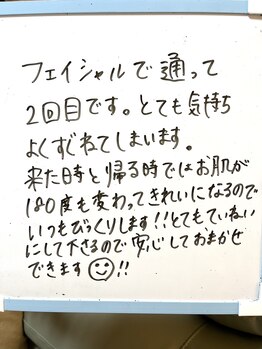 フェイシャルで通って
2回目です。とても気持ち
よくすごねてしまいます。
来た時と帰る時ではお肌が
180度も変わってきれいになるので
いつもびっくりします!!とてもていねい
にして下さるので安心しておまかせ
できます☺!!